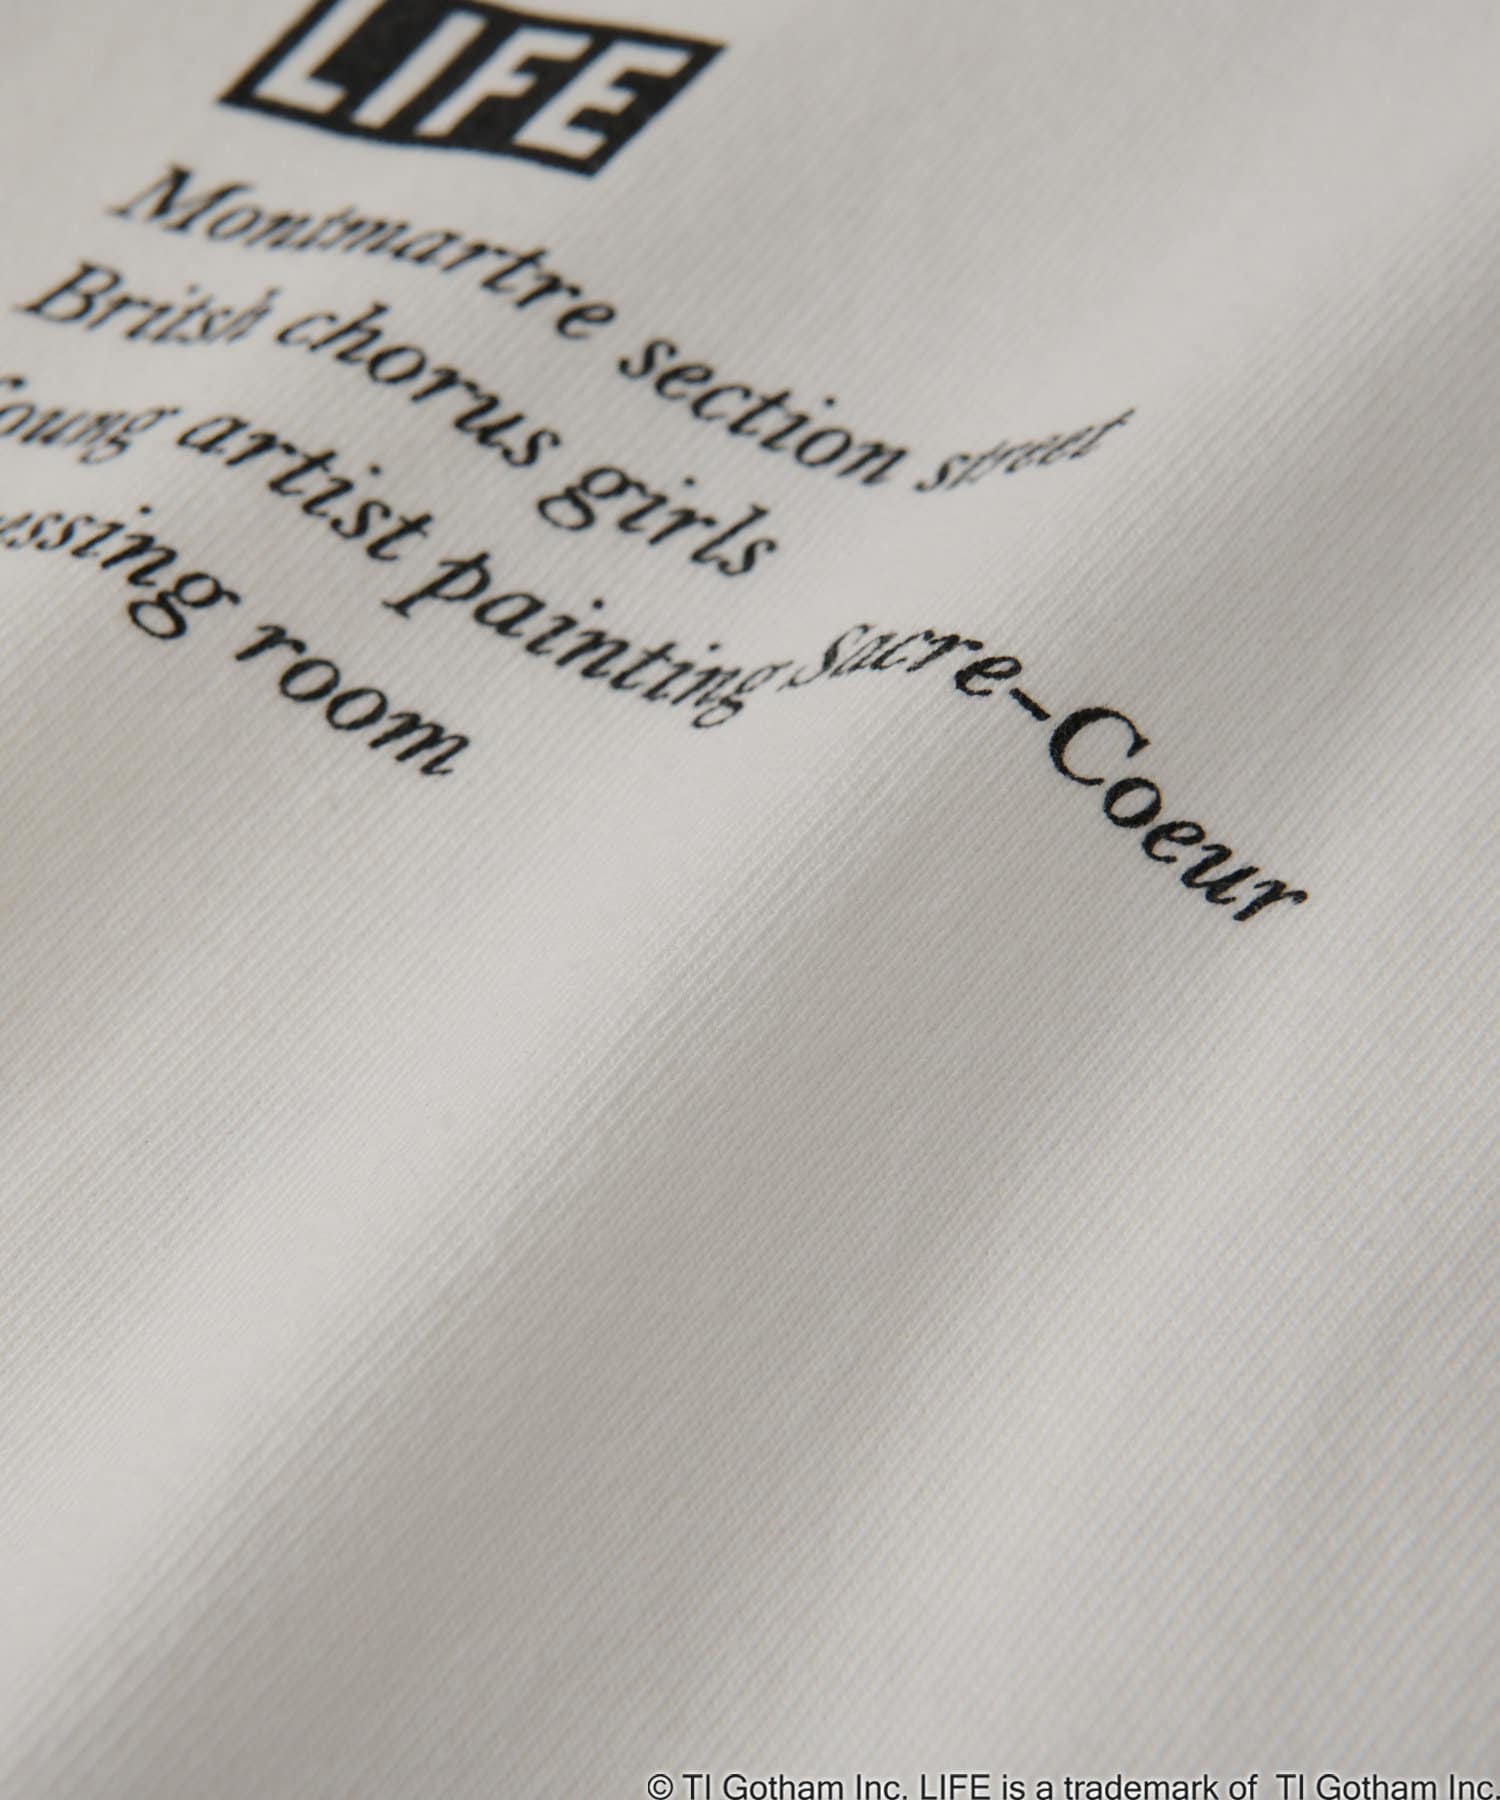 LIFE
Montmartre section street
British chorus girls
Young artist painting Sacre-Coeur
essing room
© TI Gotham Inc. LIFE is a trademark of TI Gotham Inc.